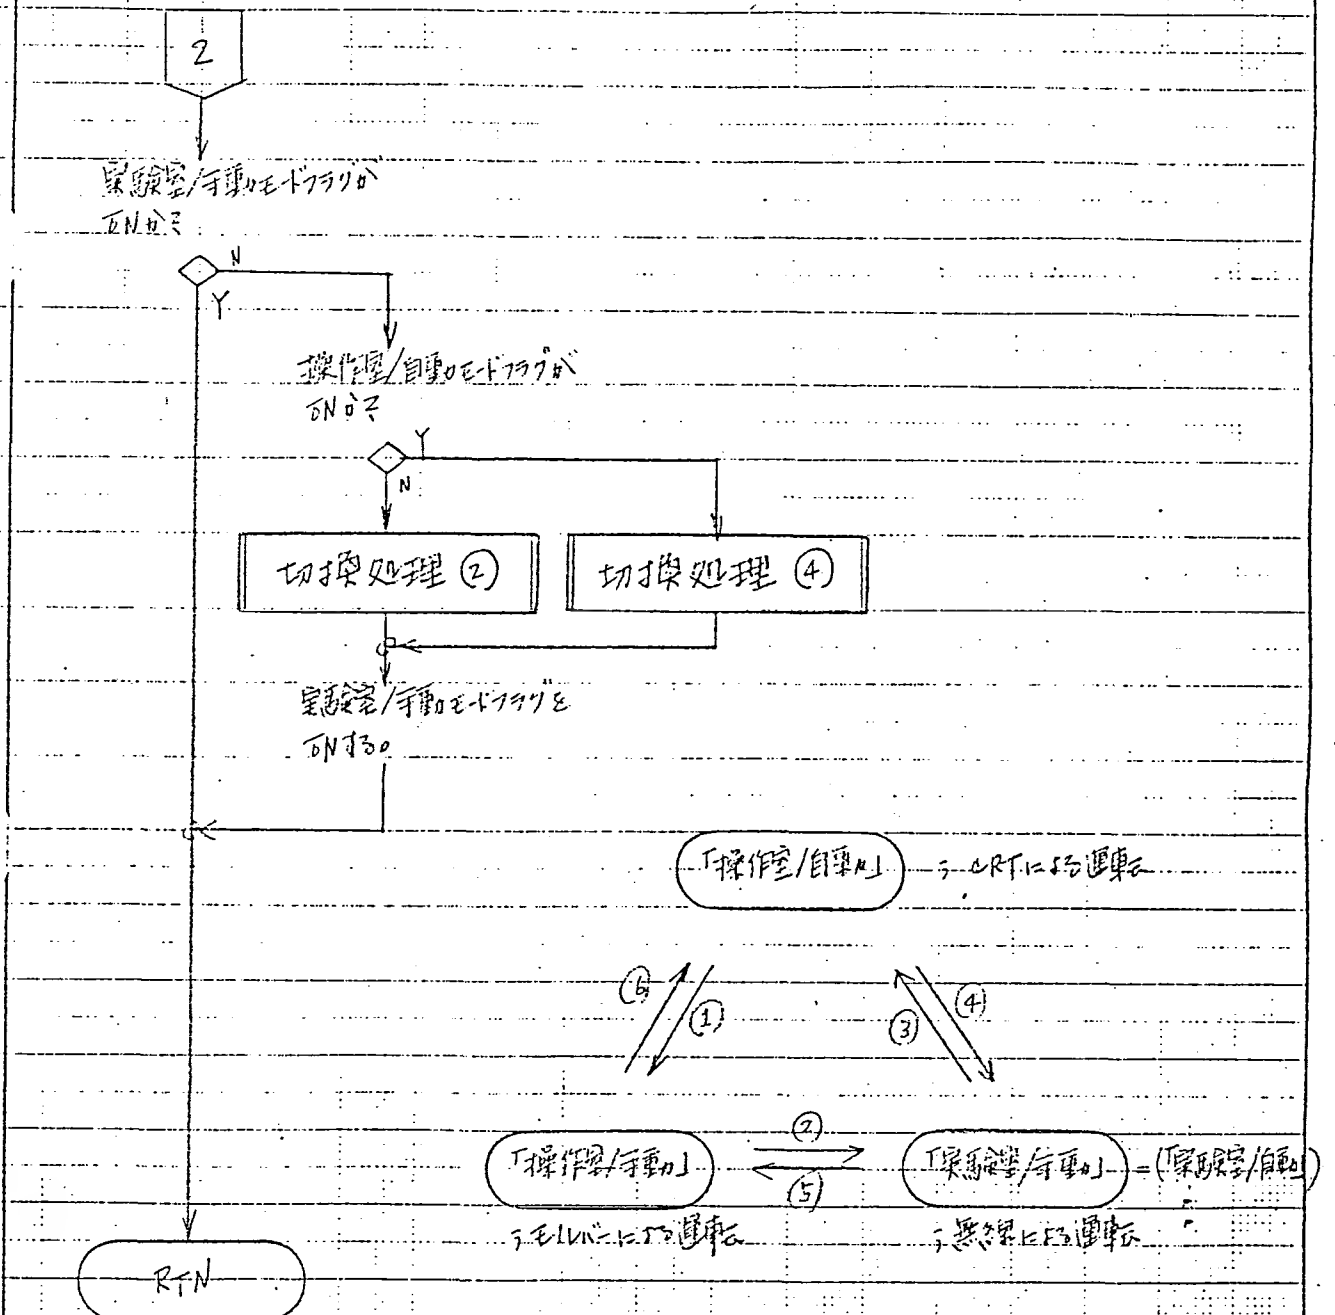 2
実験室/手動モードフラグが
ONか?
N
Y
操作室/自動モードフラグが
ONか?
Y
N
切換処理 ②
切換処理 ④
実験室/手動モードフラグを
ONする。
「操作室/自動」 ; CRTによる運転
⑥
①
③
④
「操作室/手動」
②
⑤
「実験室/手動」=(「実験室/自動」)
による運転
; 無線による運転
RTN